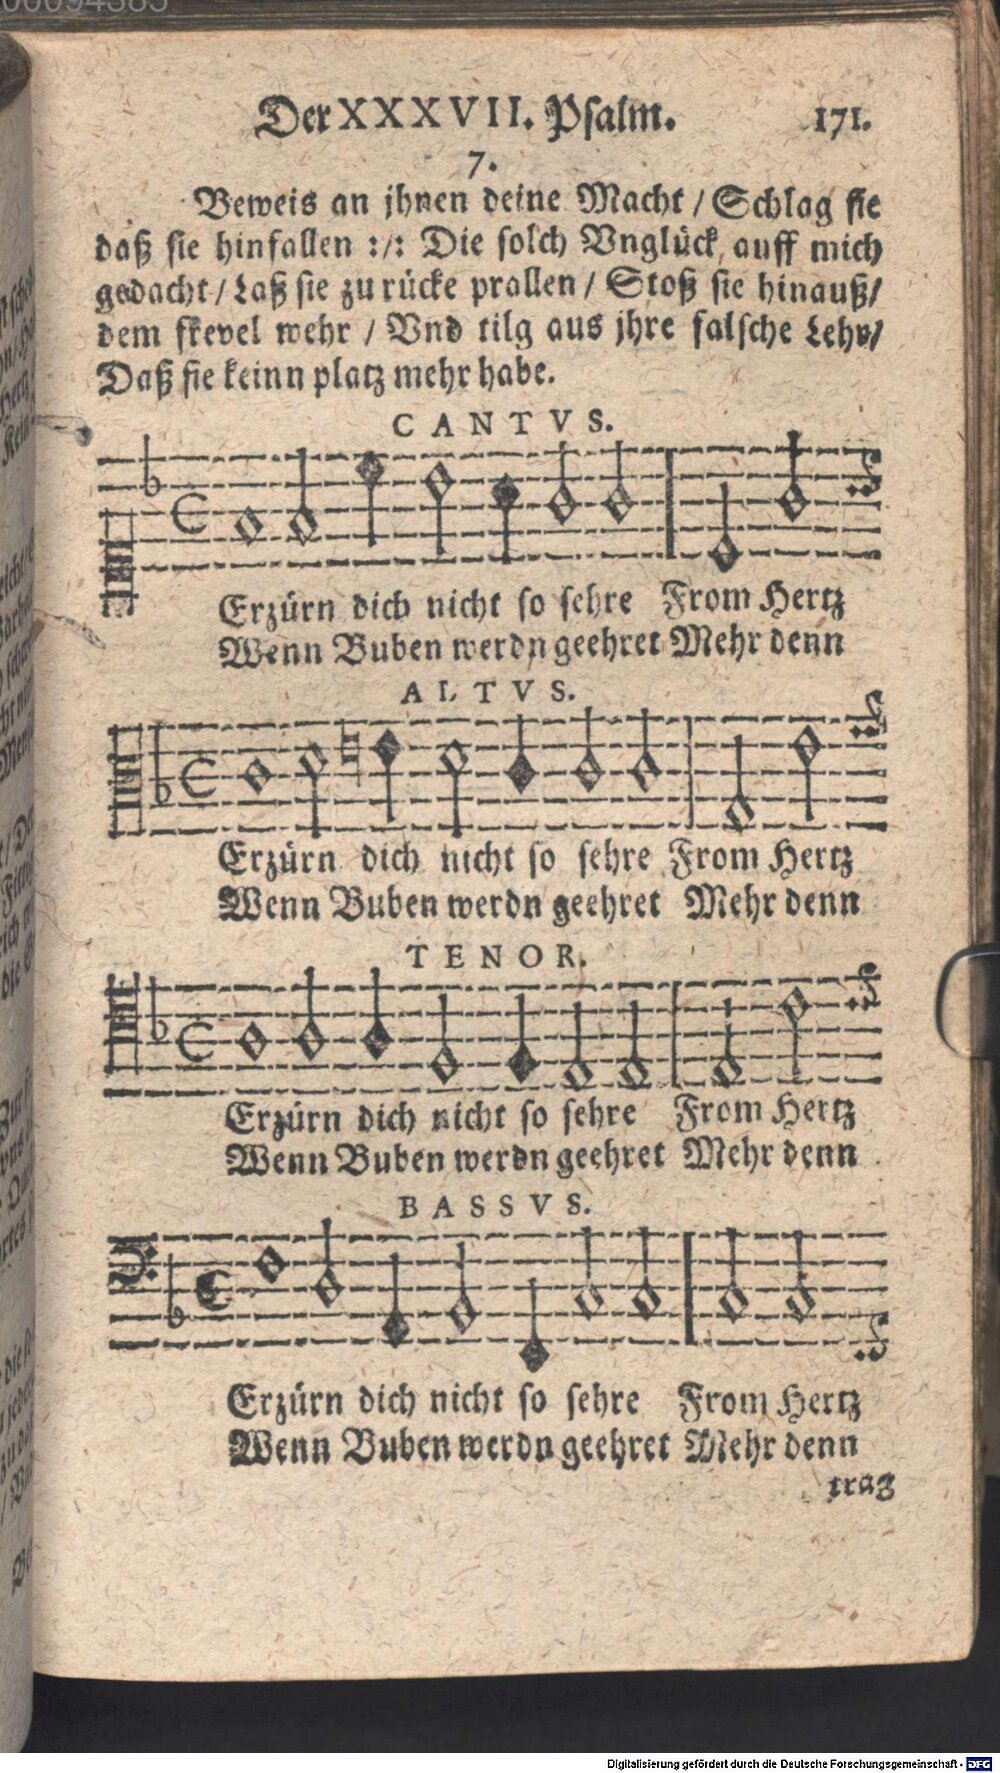 00094385
Der XXXVII. Psalm. 171.
7.
Beweis an jhnen deine Macht / Schlag sie
daß sie hinfallen :/: Die solch Vnglück auff mich
gedacht / Laß sie zu rücke prallen / Stoß sie hinauß/
dem frevel wehr / Vnd tilg aus jhre falsche Lehr/
Daß sie keinn platz mehr habe.
CANTVS.
Erzürn dich nicht so sehre From Hertz
Wenn Buben werdn geehret Mehr denn
ALTVS.
Erzürn dich nicht so sehre From Hertz
Wenn Buben werdn geehret Mehr denn
TENOR.
Erzürn dich nicht so sehre From Hertz
Wenn Buben werdn geehret Mehr denn
BASSVS.
Erzürn dich nicht so sehre From Hertz
Wenn Buben werdn geehret Mehr denn
trag
Digitalisierung gefördert durch die Deutsche Forschungsgemeinschaft - DFG